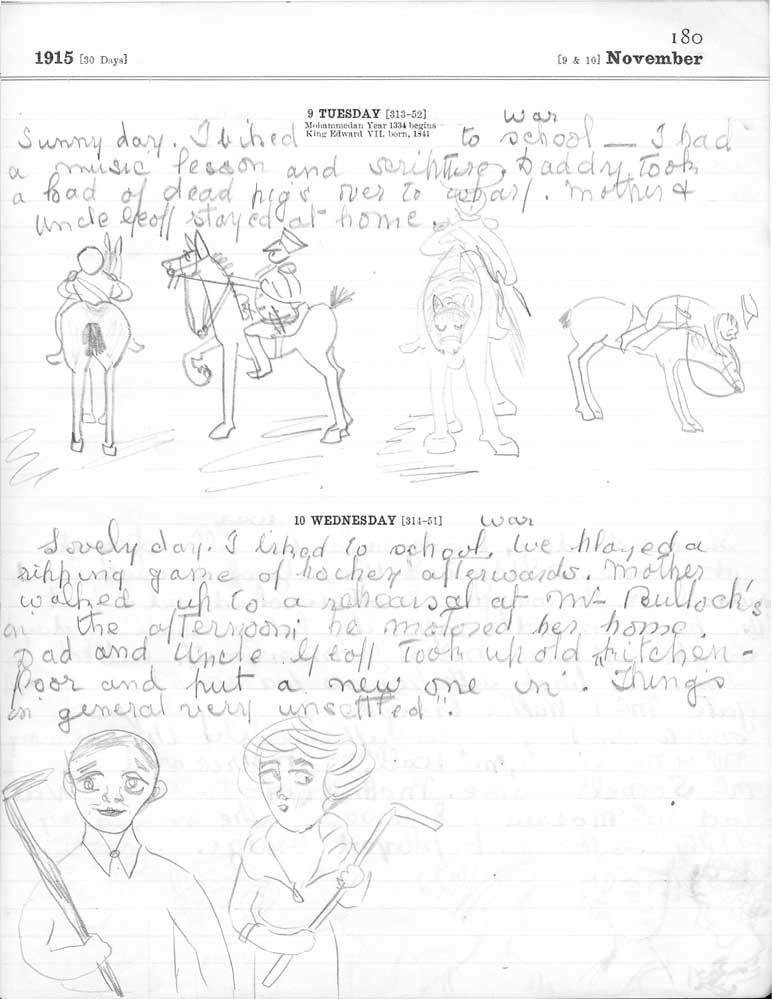 180
1915 [30 Days] [9 & 10] November
9 TUESDAY [313-52] war
Mohammedan Year 1334 begins
King Edward VII. born, 1841
Sunny day. I biked to school — I had
a music lesson and scripture, Daddy took
a load of dead pigs over to wharf. Mother &
Uncle Geoff stayed at home.
10 WEDNESDAY [314-51] war
Lovely day. I biked to school, we played a
ripping game of hockey afterwards. Mother
walked up to a rehearsal at Mr Bullock's
in the afternoon, he motored her home.
Dad and Uncle Geoff took up old "kitchen-
floor and put a new one in". Things
in general very unsettled".